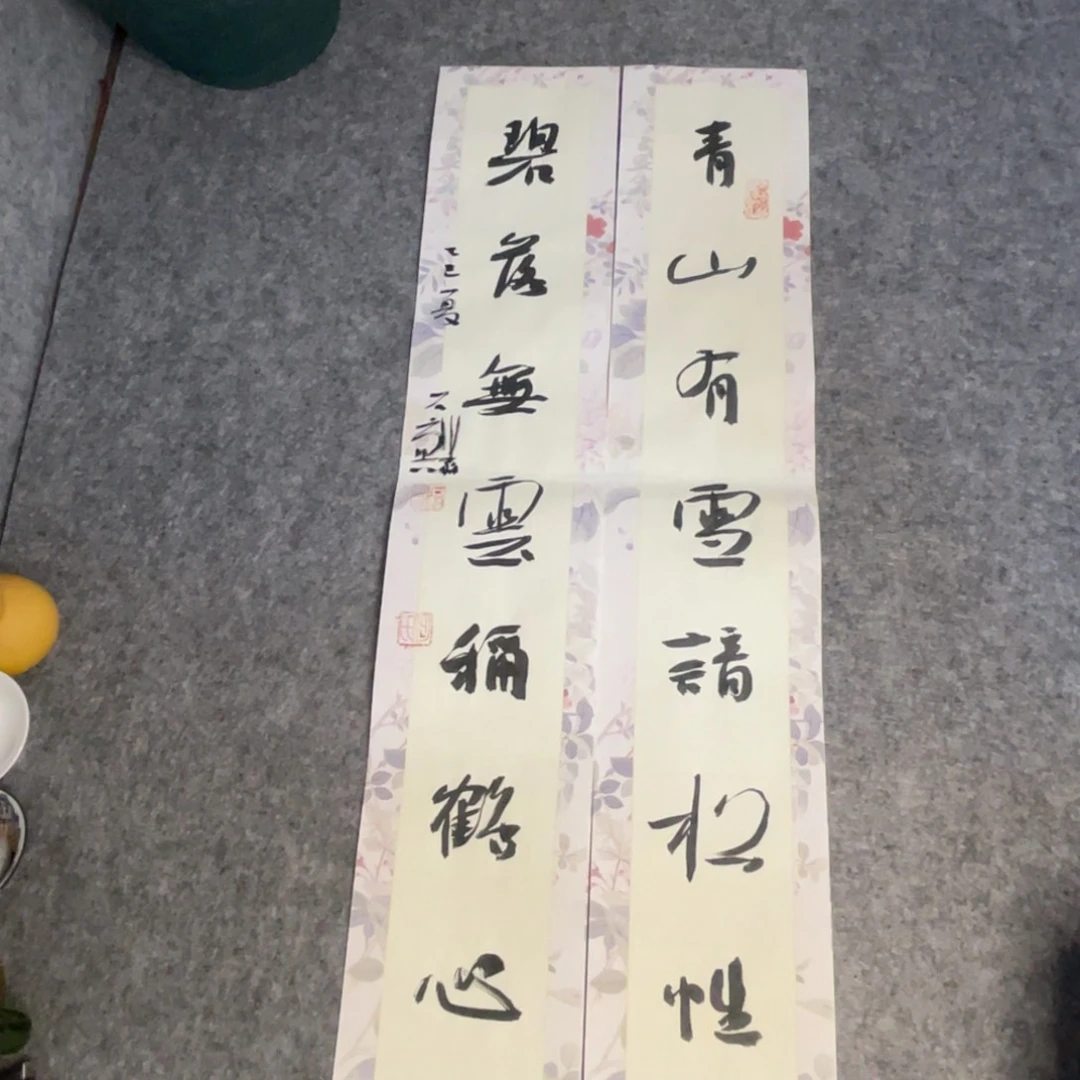 青山有雪諳松性
碧落無雲稱鶴心
乙巳夏